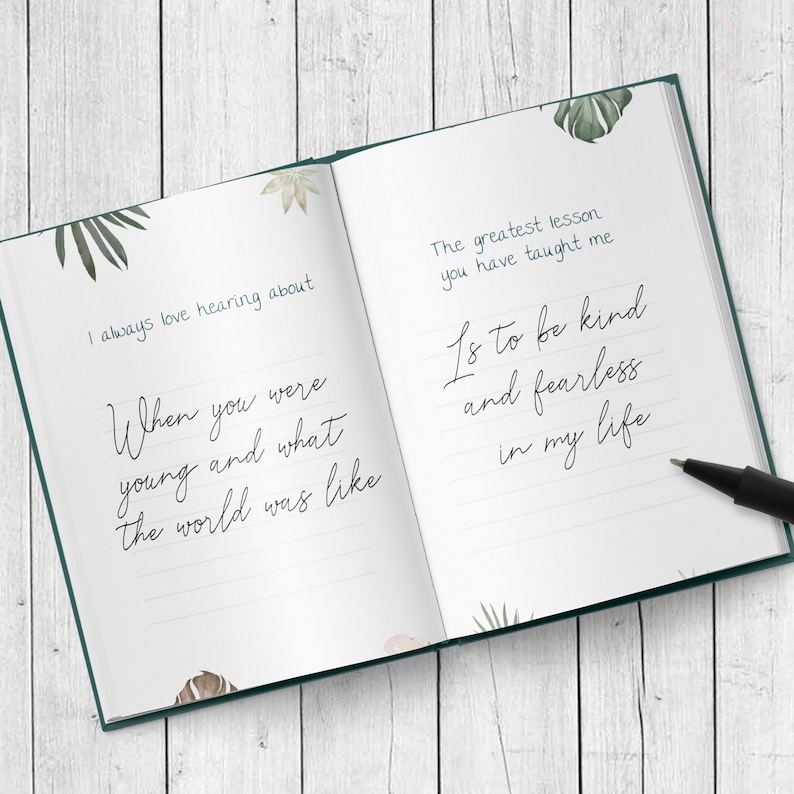 I always love hearing about
When you were
young and what
the world was like
The greatest lesson
you have taught me
Is to be kind
and fearless
in my life